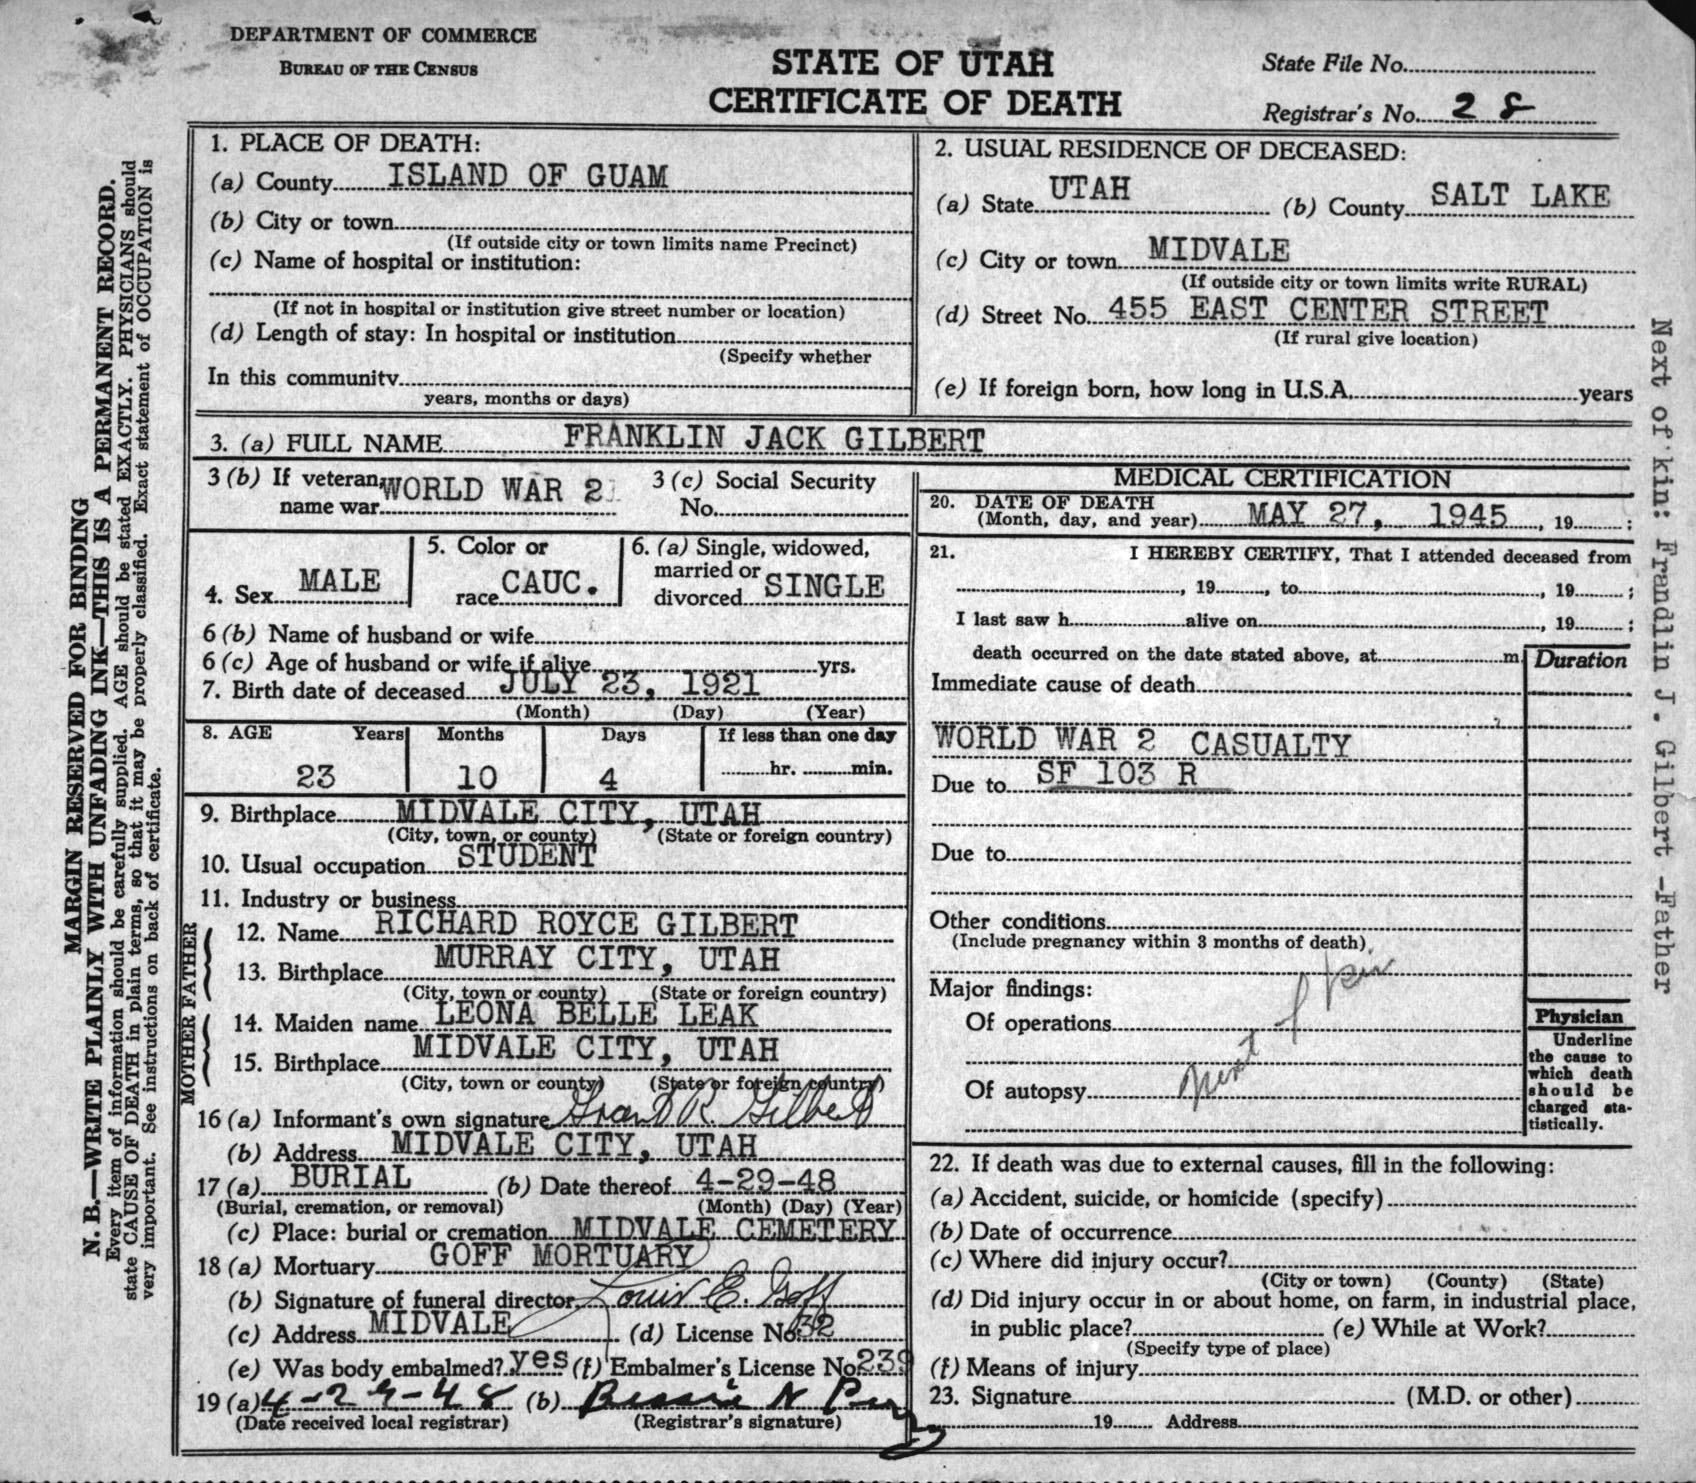 DEPARTMENT OF COMMERCE
BUREAU OF THE CENSUS
STATE OF UTAH
CERTIFICATE OF DEATH
State File No.
Registrar's No. 28
MARGIN RESERVED FOR BINDING
N. B.—WRITE PLAINLY WITH UNFADING INK—THIS IS A PERMANENT RECORD.
Every item of information should be carefully supplied. AGE should be stated EXACTLY. PHYSICIANS should
state CAUSE OF DEATH in plain terms, so that it may be properly classified. Exact statement of OCCUPATION is
very important. See instructions on back of certificate.
1. PLACE OF DEATH:
(a) County ISLAND OF GUAM
(b) City or town
(If outside city or town limits name Precinct)
(c) Name of hospital or institution:
(If not in hospital or institution give street number or location)
(d) Length of stay: In hospital or institution
(Specify whether
In this community
years, months or days)
2. USUAL RESIDENCE OF DECEASED:
(a) State UTAH (b) County SALT LAKE
(c) City or town MIDVALE
(If outside city or town limits write RURAL)
(d) Street No. 455 EAST CENTER STREET
(If rural give location)
(e) If foreign born, how long in U.S.A. years
3. (a) FULL NAME FRANKLIN JACK GILBERT
3 (b) If veteran, name war WORLD WAR 2
3 (c) Social Security No.
4. Sex MALE
5. Color or race CAUC.
6. (a) Single, widowed, married or divorced SINGLE
6 (b) Name of husband or wife
6 (c) Age of husband or wife if alive yrs.
7. Birth date of deceased JULY 23, 1921
(Month) (Day) (Year)
8. AGE Years Months Days If less than one day
23 10 4 hr. min.
9. Birthplace MIDVALE CITY, UTAH
(City, town, or county) (State or foreign country)
10. Usual occupation STUDENT
11. Industry or business
FATHER
12. Name RICHARD ROYCE GILBERT
13. Birthplace MURRAY CITY, UTAH
(City, town or county) (State or foreign country)
MOTHER
14. Maiden name LEONA BELLE LEAK
15. Birthplace MIDVALE CITY, UTAH
(City, town or county) (State or foreign country)
16 (a) Informant's own signature Grant R. Gilbert
(b) Address MIDVALE CITY, UTAH
17 (a) BURIAL (b) Date thereof 4-29-48
(Burial, cremation, or removal) (Month) (Day) (Year)
(c) Place: burial or cremation MIDVALE CEMETERY
18 (a) Mortuary GOFF MORTUARY
(b) Signature of funeral director Louis E. Goff
(c) Address MIDVALE (d) License No. 32
(e) Was body embalmed? yes (f) Embalmer's License No. 239
19 (a) 4-29-48 (b) Bessie N
(Date received local registrar) (Registrar's signature)
MEDICAL CERTIFICATION
20. DATE OF DEATH
(Month, day, and year) MAY 27, 1945, 19 ;
21. I HEREBY CERTIFY, That I attended deceased from
, 19 , to , 19 ;
I last saw h alive on , 19 ;
death occurred on the date stated above, at m.
Duration
Immediate cause of death
WORLD WAR 2 CASUALTY
Due to SF 103 R
Due to
Other conditions
(Include pregnancy within 3 months of death)
Major findings:
Of operations
Of autopsy
next of kin
Physician
Underline
the cause to
which death
should be
charged sta-
tistically.
22. If death was due to external causes, fill in the following:
(a) Accident, suicide, or homicide (specify)
(b) Date of occurrence
(c) Where did injury occur?
(City or town) (County) (State)
(d) Did injury occur in or about home, on farm, in industrial place,
in public place? (e) While at Work?
(Specify type of place)
(f) Means of injury
23. Signature (M.D. or other)
19 Address
Next of kin: Frandlin J. Gilbert -Father